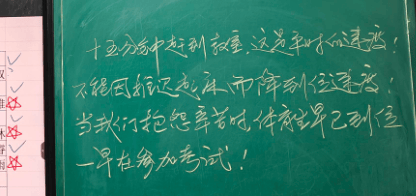 十五分钟赶到教室,这是平时的速度!
不能因推迟起床而降到位速度!
当我们抱怨辛苦时,体育生早已到位
一早在参加考试!
雨